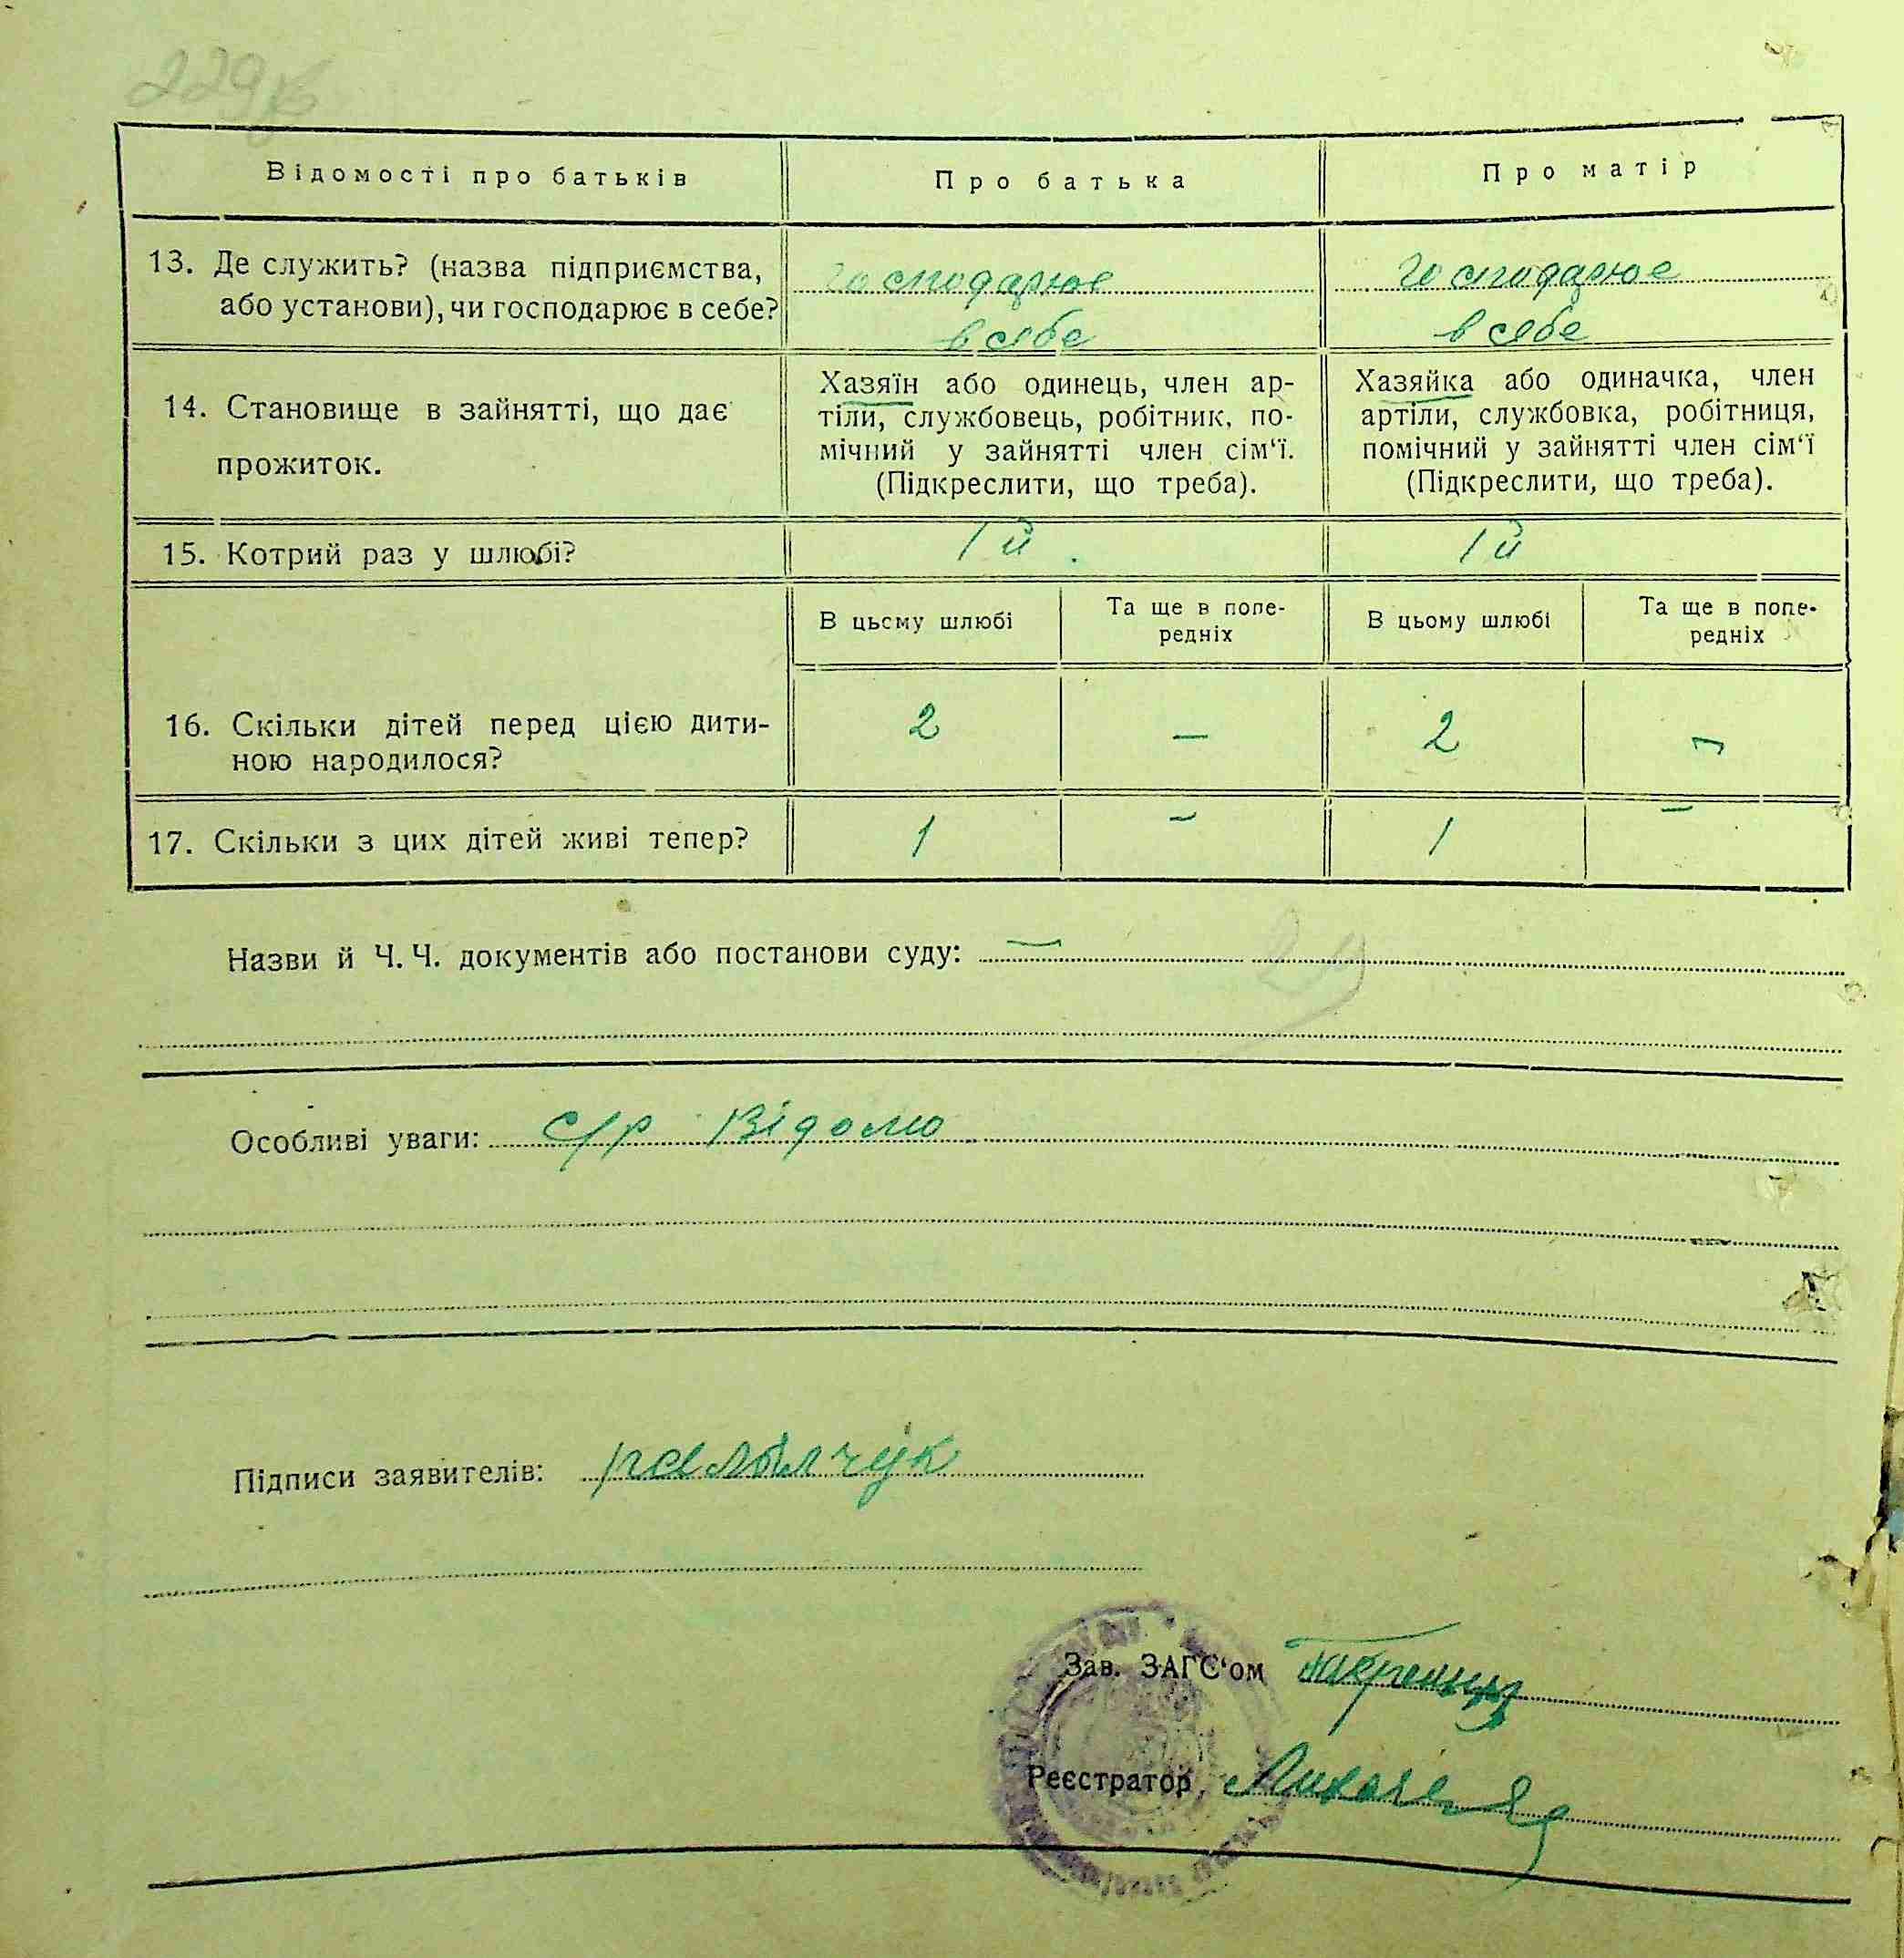 Відомості про батьків
Про батька
Про матір
13. Де служить? (назва підприємства,
або установи), чи господарює в себе?
господарює
в себе
господарює
в себе
14. Становище в зайнятті, що дає
прожиток.
Хазяїн або одинець, член ар-
тіли, службовець, робітник, по-
мічний у зайнятті член сім‘ї.
(Підкреслити, що треба).
Хазяйка або одиначка, член
артіли, службовка, робітниця,
помічний у зайнятті член сім‘ї
(Підкреслити, що треба).
15. Котрий раз у шлюбі?
1й
1й
В цьому шлюбі
Та ще в попе-
редніх
В цьому шлюбі
Та ще в попе-
редніх
16. Скільки дітей перед цією дити-
ною народилося?
2
—
2
—
17. Скільки з цих дітей живі тепер?
1
—
1
—
Назви й Ч. Ч. документів або постанови суду: —
Особливі уваги: с/р відомо
Підписи заявителів:
Зав. ЗАГС‘ом
Реєстратор